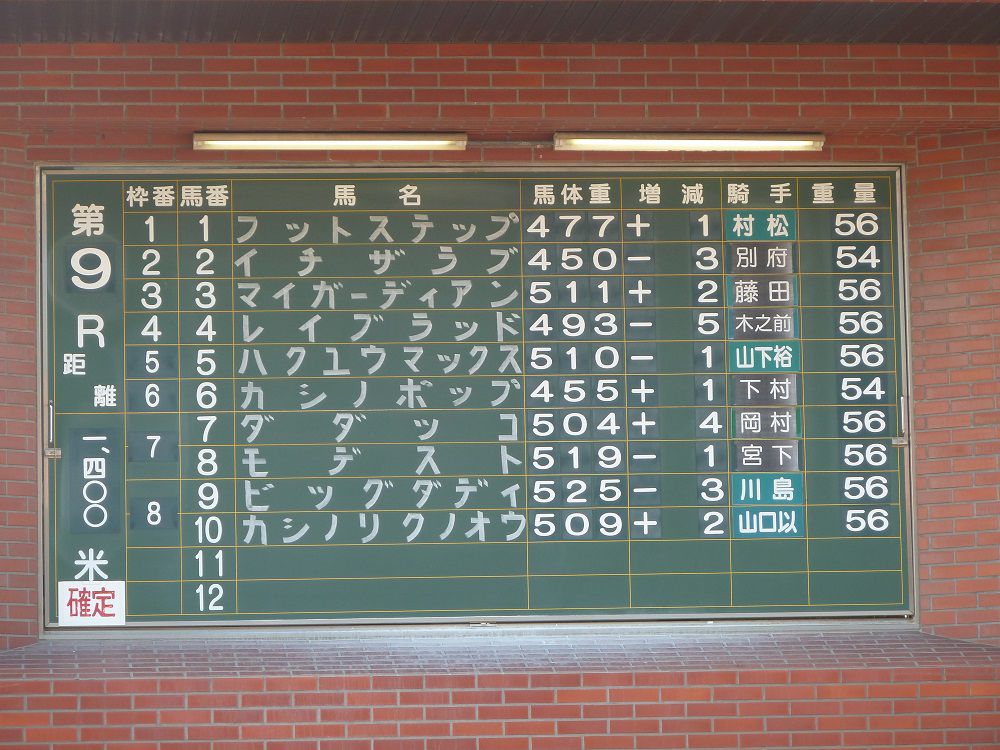 第9R
距離
一、四〇〇米
確定
枠番 馬番 馬名 馬体重 増減 騎手 重量
1 1 フットステップ 477 + 1 村松 56
2 2 イチザラブ 450 − 3 別府 54
3 3 マイガーディアン 511 + 2 藤田 56
4 4 レイブラッド 493 − 5 木之前 56
5 5 ハクユウマックス 510 − 1 山下裕 56
6 6 カシノボップ 455 + 1 下村 54
7 7 ダダッコ 504 + 4 岡村 56
8 モデスト 519 − 1 宮下 56
8 9 ビッグダディ 525 − 3 川島 56
10 カシノリクノオウ 509 + 2 山口以 56
11
12